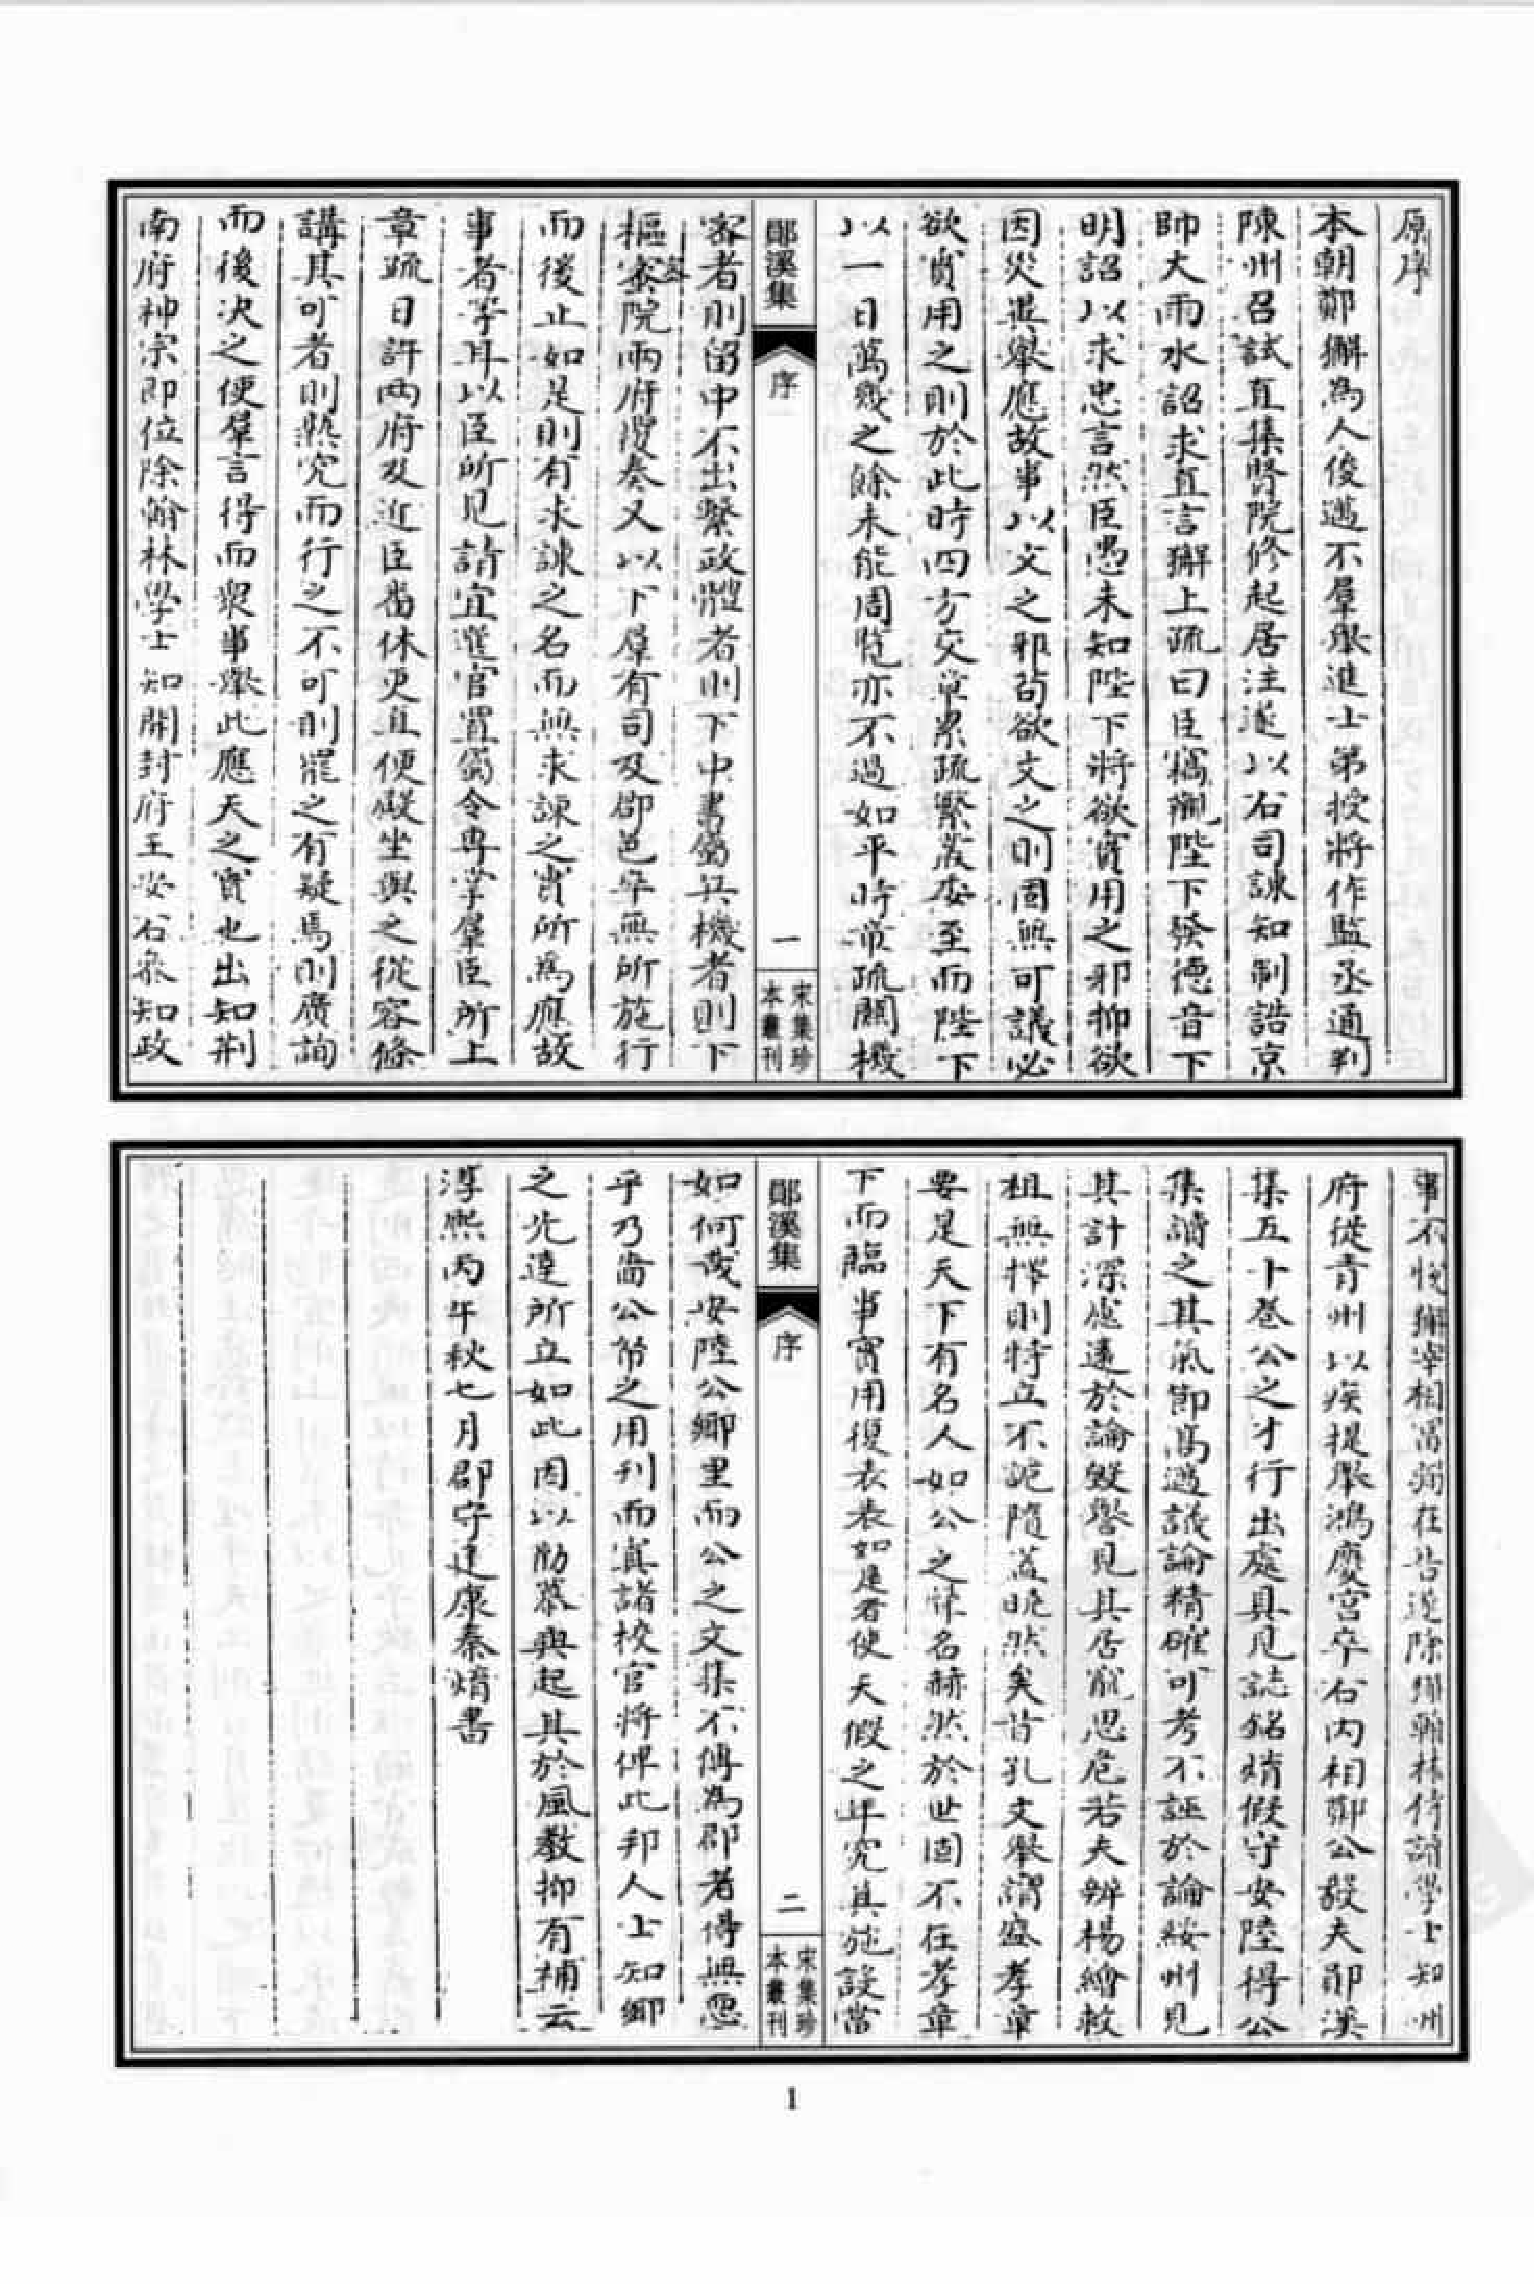 原序
本朝鄭獬為人俊邁不羣舉進士弟授將作監丞通判
陳州召試直集賢院修起居注遂以右司諫知制誥京
師大雨水詔求直言獬上疏曰臣竊觀陛下發德音下
明詔以求忠言然臣愚未知陛下將欲實用之邪抑欲
因災異舉應故事以文之邪苟欲文之則固無可議必
欲實用之則於此時四方交章累疏繁叢委至而陛下
以一日萬幾之餘未能周覽亦不過如平時章疏關機
鄖溪集
序
一
宋集珍
本叢刊
密者則留中不出繫政體者則下中書屬兵機者則下
樞密院兩府覆奏又以下羣有司及郡邑卒無所施行
而後止如是則有求諫之名而無求諫之實所為應故
事者等耳以臣所見請宜選官置屬令專掌羣臣所上
章疏日許兩府及近臣番休更直便殿坐與之從容條
講其可者則熟究而行之不可則罷之有疑焉則廣詢
而後決之使羣言得而衆事舉此應天之實也出知荆
南府神宗即位除翰林學士知開封府王安石參知政
事不悅獬宰相富弼在告遂除獬翰林侍讀學士知州
府從青州以疾提舉鴻慶宮卒右內相鄭公毅夫鄖溪
集五十卷公之才行出處具見誌銘焴假守安陸得公
集讀之其氣節高邁議論精確可考不誣於論綏州見
其計深慮遠於論毀譽見其居寵思危若夫辨楊繪救
祖無擇則特立不詭隨蓋曉然矣昔孔文舉謂盛孝章
要是天下有名人如公之休名赫然於世固不在孝章
下而臨事實用復表表如是若使天假之年究其施設當
鄖溪集
序
二
宋集珍
本叢刊
如何哉安陸公鄉里而公之文集不傳為郡者得無愧
乎乃嗇公帑之用刊而寘諸校官將俾此邦人士知鄉
之先達所立如此因以勵慕興起其於風教抑有補云
淳熙丙午秋七月郡守建康秦焴書
1